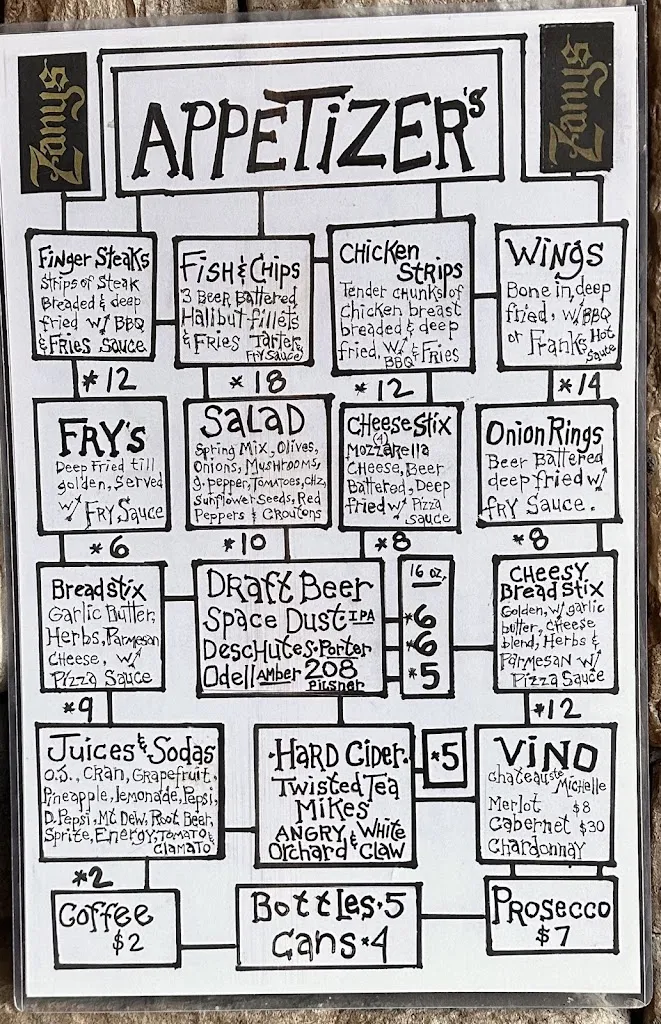 Zanys
APPETIZER'S
Zanys
Finger Steaks
Strips of Steak
Breaded & deep
fried w/ BBQ
& Fries Sauce
*12
Fish & Chips
3 Beer Battered
Halibut fillets
& Fries Tarter,
Fry Sauce
*18
Chicken
Strips
Tender chunks of
chicken breast
breaded & deep
fried, w/ & Fries
BBQ
*12
Wings
Bone in, deep
fried, w/ BBQ
or Franks Hot
Sauce
*14
FRY'S
Deep Fried till
golden, Served
w/ Fry Sauce
*6
Salad
Spring Mix, Olives,
Onions, Mushrooms,
g. pepper, Tomatoes, chz,
Sunflower Seeds, Red
Peppers & Croutons
*10
Cheese Stix
(4)
Mozzarella
Cheese, Beer
Battered, Deep
fried w/ Pizza
Sauce
*8
Onion Rings
Beer Battered
deep fried w/
fry Sauce.
*8
Breadstix
Garlic Butter,
Herbs, Parmesan
Cheese, w/
Pizza Sauce
*9
Draft Beer
16 oz.
Space Dust·IPA *6
Deschutes·Porter *6
Odell Amber 208 Pilsner *5
Cheesy
Bread Stix
Golden, w/ garlic
butter, cheese
blend, Herbs &
Parmesan w/
Pizza Sauce
*12
Juices & Sodas
O.J., Cran, Grapefruit,
Pineapple, lemonade, Pepsi,
D. Pepsi, Mt Dew. Root Beer,
Sprite, Energy, Tomato &
Clamato
*2
·Hard Cider· *5
Twisted Tea
Mikes
Angry & White
Orchard Claw
Vino
chateau ste Michelle
Merlot $8
Cabernet $30
Chardonnay
Coffee
$2
Bottles·5
Cans*4
Prosecco
$7